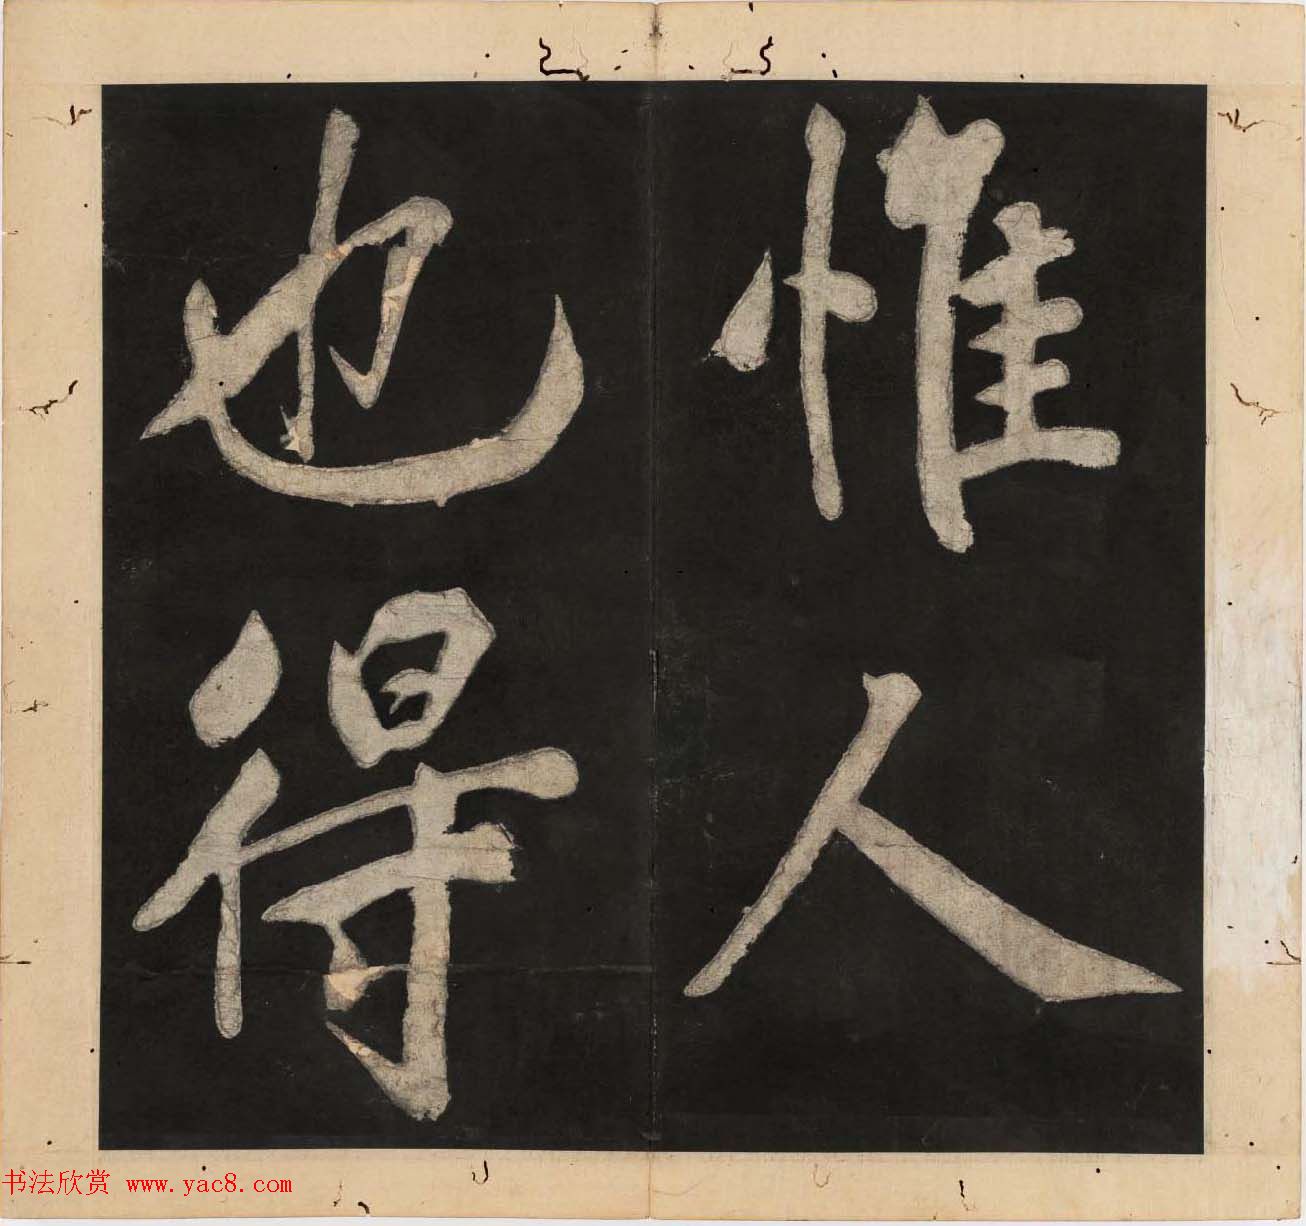 惟人
也得
书法欣赏 www.yac8.com